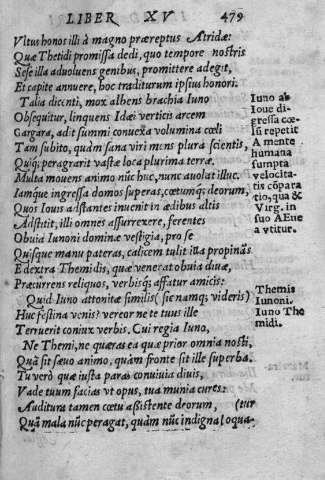 LIBER XV 479
Vltus honos illi à magno præreptus Atridæ:
Quæ Thetidi promissa dedi, quo tempore nostris
Sese illa aduoluens genibus, promittere adegit,
Et capite annuere, hoc traditurum ipsius honori.
Talia dicenti, mox albens brachia Iuno
Obsequitur, linquens Idæi verticis arcem
Gargara, adit summi conuexa volumina cœli
Tam subito, quàm sana viri mens plura scientis,
Quiq; peragrarit vastæ loca plurima terræ.
Multa mouens animo nũc huc, nunc auolat illuc.
Iamque ingressa domos superas, cœtumq; deorum,
Quos Iouis adstantes inuenit in ædibus altis
Adstitit, illi omnes assurrexere, ferentes
Obuia Iunoni dominæ vestigia, pro se
Quisque manu pateras, calicem tulit illa propinãs
E dextra Themidis, quæ venerat obuia diuæ,
Præcurrens reliquos, verbisq; affatur amicis:
Quid Iuno attonitæ similis (sic namq; videris)
Huc festina venis? vereor ne te tuus ille
Terruerit coniux verbis. Cui regia Iuno,
Ne Themi, ne quæras ea quæ prior omnia nosti,
Quã sit sæuo animo, quàm fronte sit ille superba.
Tu verò quæ iusta paras conuiuia diuis,
Vade tuum facias vt opus, tua munia cures:
Auditura tamen cœtu aßistente deorum, (tur
Quã mala nũc peragat, quàm nũc indigna loqua-
Iuno ab
Ioue di-
gressa cœ-
lũ repetit
A mente
humana
sumpta
velocita-
tis cõpara
tio, qua &
Virg. in
suo AEnea
vtitur.
Themis
Iunoni.
Iuno The
midi.